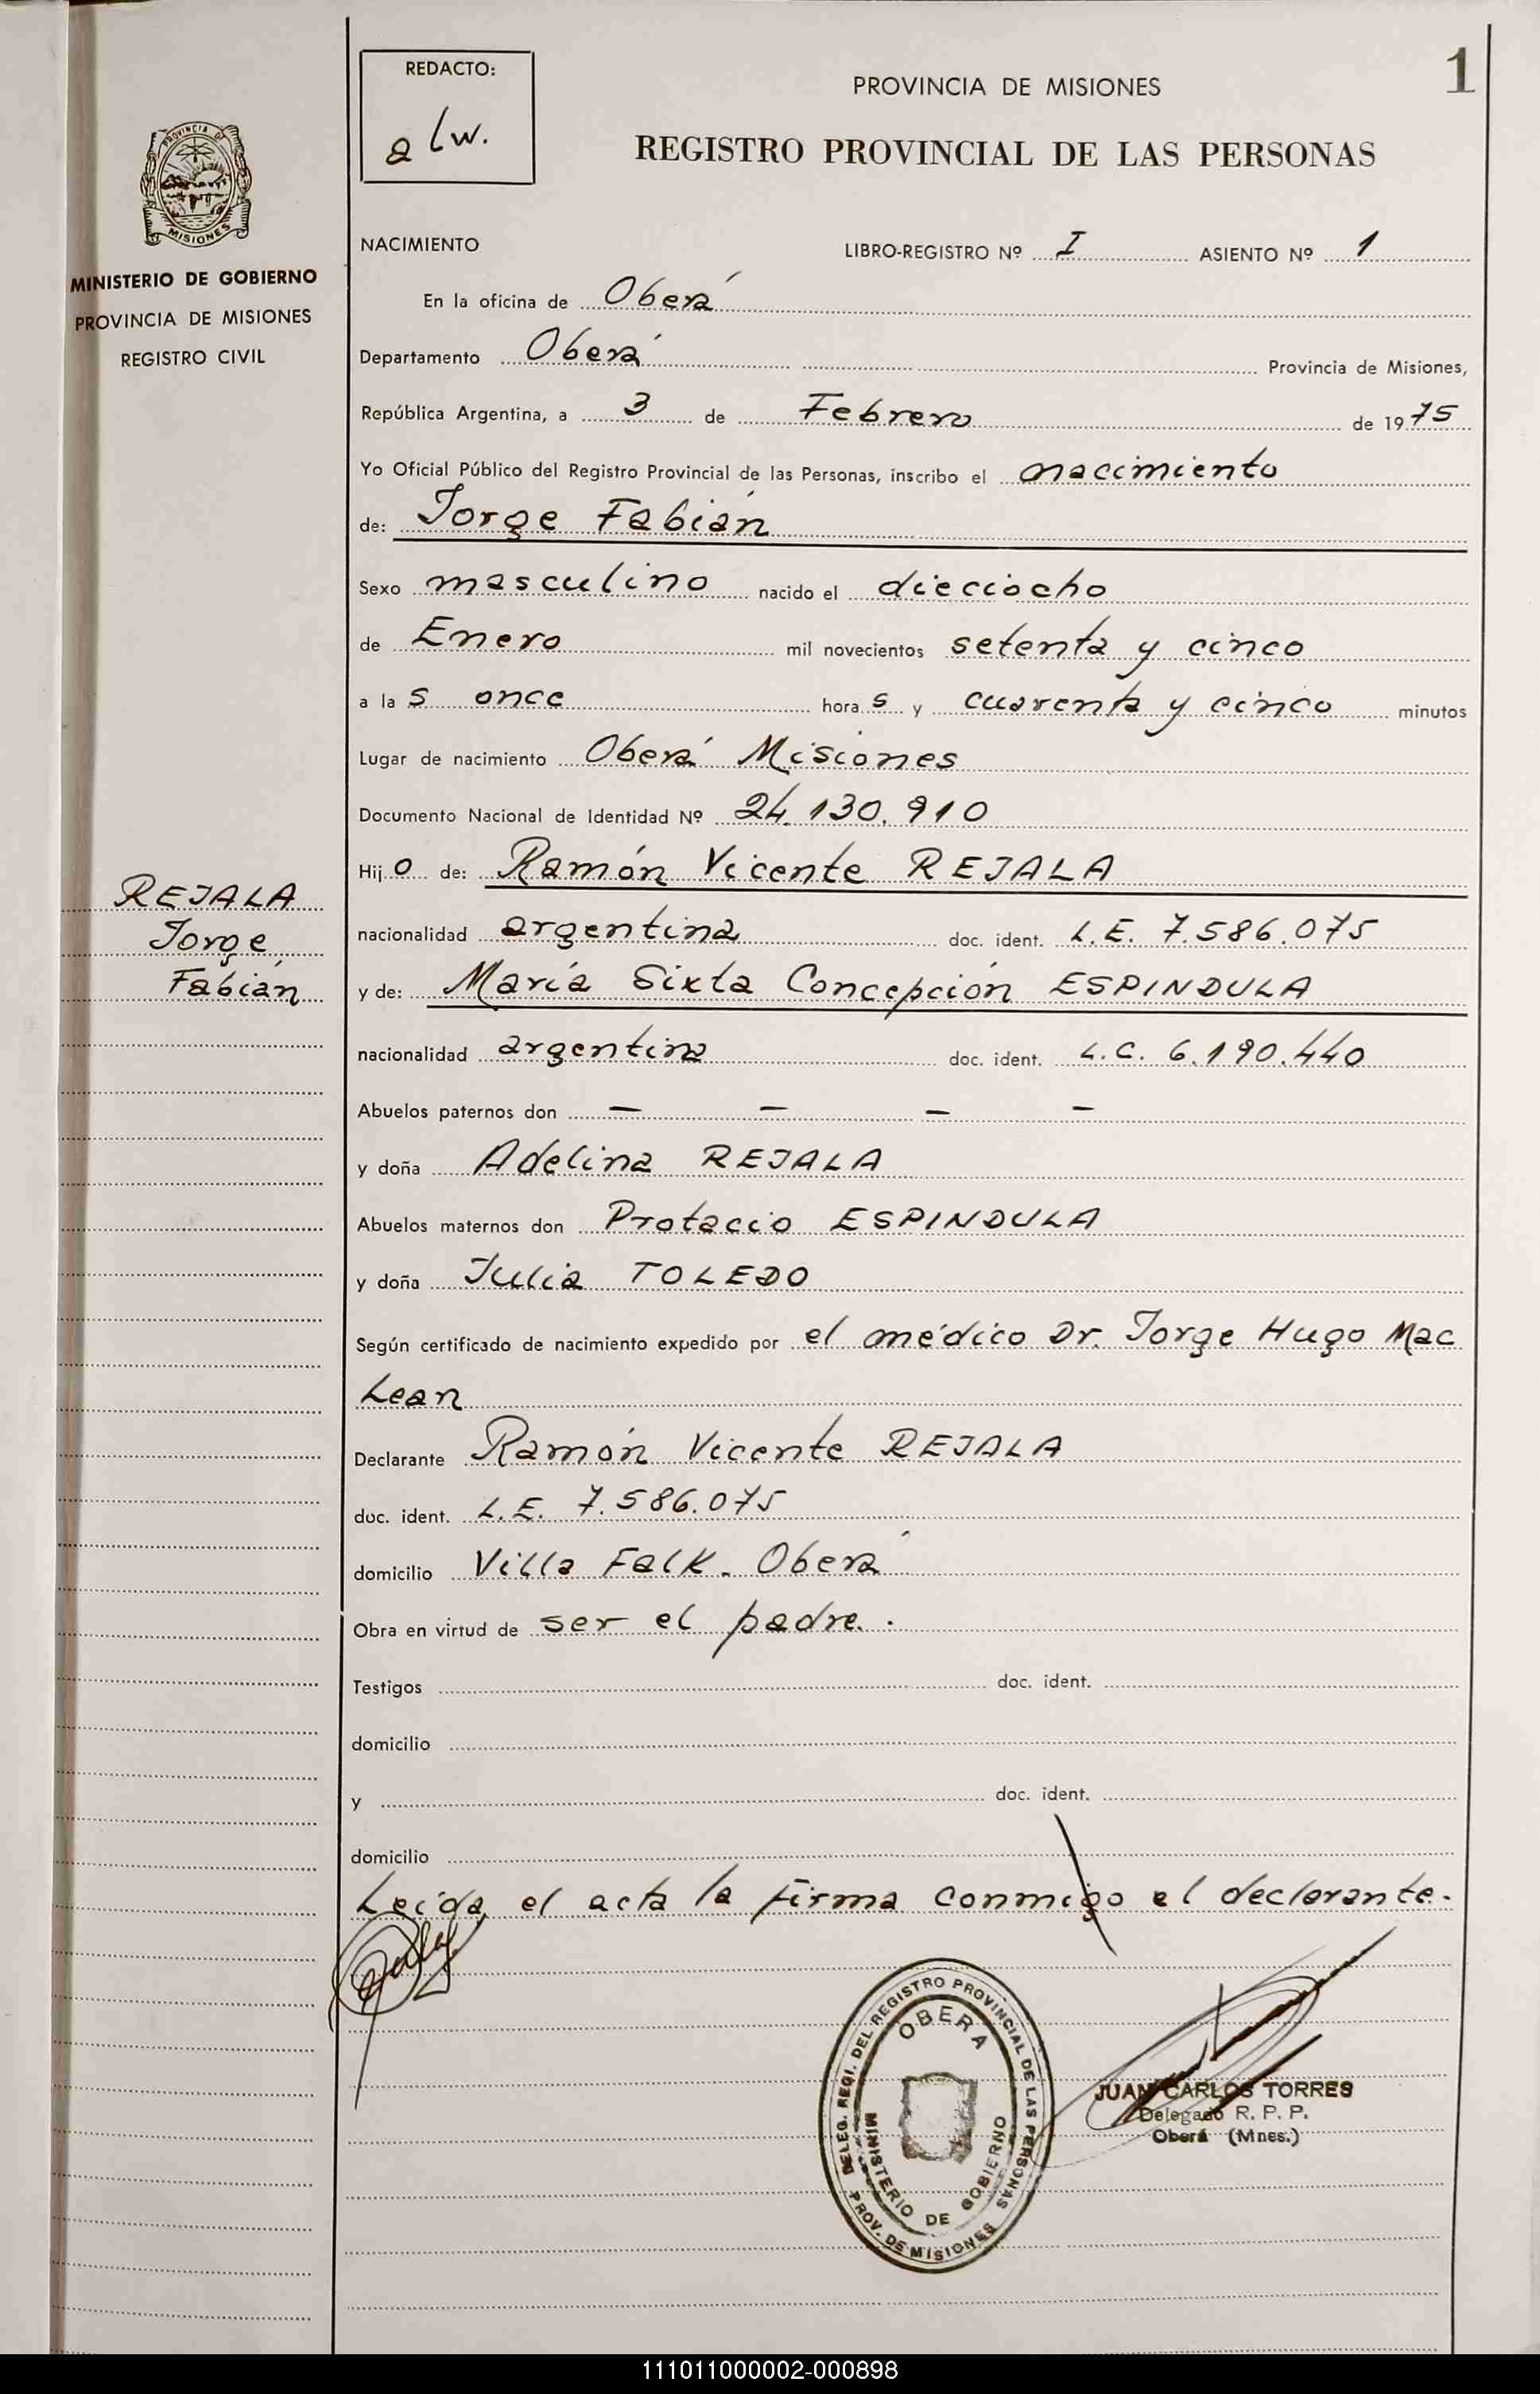 REDACTO:
a lw.
PROVINCIA DE MISIONES
1
REGISTRO PROVINCIAL DE LAS PERSONAS
PROVINCIA DE
MISIONES
MINISTERIO DE GOBIERNO
PROVINCIA DE MISIONES
REGISTRO CIVIL
NACIMIENTO LIBRO-REGISTRO Nº I ASIENTO Nº 1
En la oficina de Oberá
Departamento Oberá Provincia de Misiones,
República Argentina, a 3 de Febrero de 1975
Yo Oficial Público del Registro Provincial de las Personas, inscribo el nacimiento
de: Jorge Fabián
Sexo masculino nacido el dieciocho
de Enero mil novecientos setenta y cinco
a las once horas y cuarenta y cinco minutos
Lugar de nacimiento Oberá Misiones
Documento Nacional de Identidad Nº 24.130.910
Hijo de: Ramón Vicente REJALA
REJALA
Jorge
Fabián
nacionalidad argentina doc. ident. L.E. 7.586.075
y de: María Sixta Concepción ESPINDULA
nacionalidad argentina doc. ident. L.C. 6.190.440
Abuelos paternos don — — — —
y doña Adelina REJALA
Abuelos maternos don Protacio ESPINDULA
y doña Julia TOLEDO
Según certificado de nacimiento expedido por el médico Dr. Jorge Hugo Mac
Lean
Declarante Ramón Vicente REJALA
doc. ident. L.E. 7.586.075
domicilio Villa Falk. Oberá
Obra en virtud de ser el padre.
Testigos doc. ident.
domicilio
y doc. ident.
domicilio
Leída el acta la firma conmigo el declarante.
DELEG. REGI. DEL REGISTRO PROVINCIAL DE LAS PERSONAS
OBERA
MINISTERIO DE GOBIERNO
PROV. DE MISIONES
JUAN CARLOS TORRES
Delegado R. P. P.
Oberá (Mnes.)
111011000002-000898